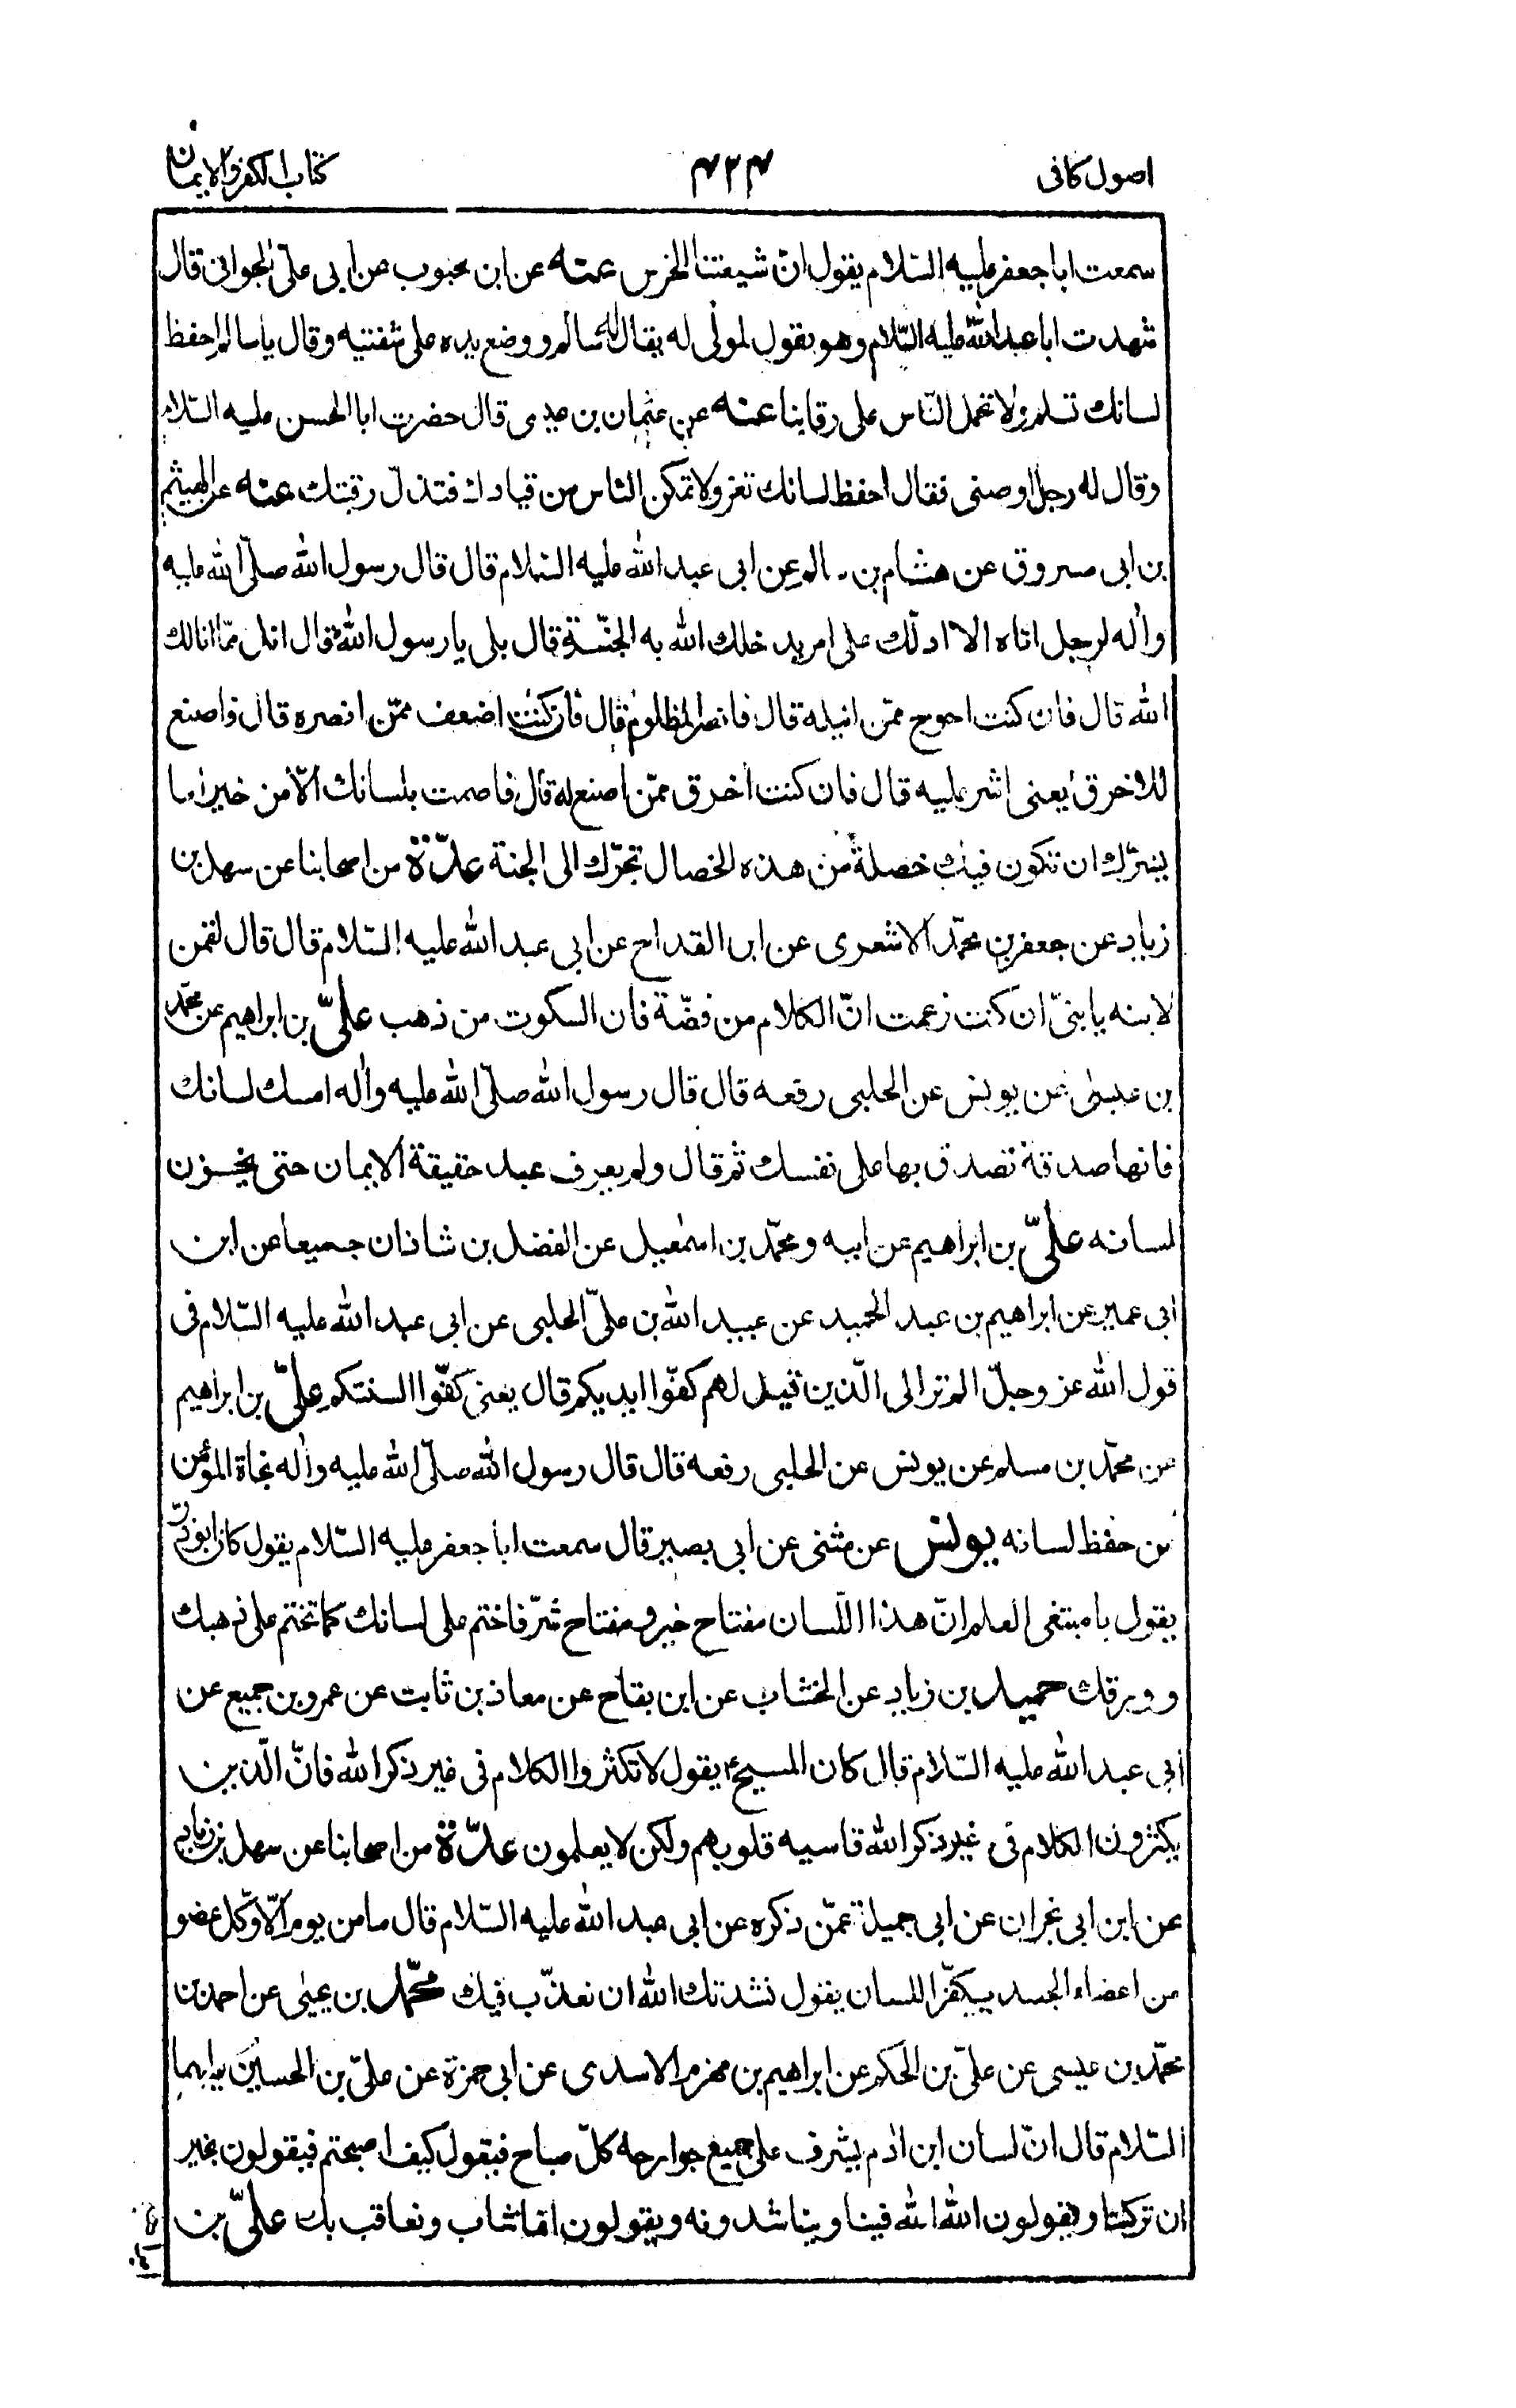 اصول کافی ۴۲۴ کتاب الکفر والایمان
سمعت ابا جعفر علیه السّلام یقول انّ شیعتنا الخرس عنه عن ابن محبوب عن ابی علیّ الجوانی قال
شهدت ابا عبد الله علیه السّلام وهو یقول لمولی له یقال له سالم ووضع یده علی شفتیه وقال یا سالم احفظ
لسانك تسلم ولا تحمل النّاس علی رقابنا عنه عن عثمان بن عیسی قال حضرت ابا الحسن علیه السّلام
وقال له رجل اوصنی فقال احفظ لسانك تعز ولا تمكن الناس من قیادك فتذلّ رقبتك عنه عن الهیثم
بن ابی مسروق عن هشام بن سالم عن ابی عبد الله علیه السّلام قال قال رسول الله صلّی الله علیه
واٰله لرجل اتاه الا ادلّك علی امر یدخلك الله به الجنّة قال بلی یا رسول الله قال انل ممّا انالك
الله قال فان كنت احوج ممّن انیله قال فانصر المظلوم قال فان كنت اضعف ممّن انصره قال فاصنع
للاخرق یعنی اشر علیه قال فان كنت اخرق ممّن اصنع له قال فاصمت بلسانك الّا من خیر اما
یسّرك ان تكون فیك خصلة من هذه الخصال تجرّك الی الجنة علّة من اصحابنا عن سهل بن
زیاد عن جعفر بن محمّد الاشعری عن ابن القداح عن ابی عبد الله علیه السّلام قال قال لقمن
لابنه یا بنیّ ان كنت زعمت انّ الكلام من فضّة فان السكوت من ذهب علیّ بن ابراهیم عن محمّد
بن عیسیٰ عن یونس عن الحلبی رفعه قال قال رسول الله صلّی الله علیه واٰله امسك لسانك
فانها صدقة تصدق بها علی نفسك ثم قال ولم یعرف عبد حقیقة الایمان حتی یخزن
لسانه علیّ بن ابراهیم عن ابیه ومحمّد بن اسمٰعیل عن الفضل بن شاذان جمیعا عن ابن
ابی عمیر عن ابراهیم بن عبد الحمید عن عبید الله بن علیّ الحلبی عن ابی عبد الله علیه السّلام فی
قول الله عز وجلّ الم تر الی الّذین قیل لهم كفّوا ایدیكم قال یعنی كفّوا السنتكم علیّ بن ابراهیم
عن محمّد بن مسلم عن یونس عن الحلبی رفعه قال قال رسول الله صلّی الله علیه واٰله نجاة المؤمن
من حفظ لسانه یونس عن مثنی عن ابی بصیر قال سمعت ابا جعفر علیه السّلام یقول كان ابوذرّ
یقول یا مبتغی العلم انّ هذا اللّسان مفتاح خیر ومفتاح شرّ فاختم علی لسانك كما تختم علی ذهبك
وورقك حمید بن زیاد عن الخشاب عن ابن بقاح عن معاذ بن ثابت عن عمرو بن جمیع عن
ابی عبد الله علیه السّلام قال كان المسیح ع یقول لا تكثروا الكلام فی غیر ذكر الله فانّ الّذین
یكثرون الكلام فی غیر ذكر الله قاسیه قلوبهم ولكن لا یعلمون علّة من اصحابنا عن سهل بن زیاد
عن ابن ابی نجران عن ابی جمیلة عمّن ذكره عن ابی عبد الله علیه السّلام قال ما من یوم الّا وكل عضو
من اعضاء الجسد یكفّر اللسان یقول نشدتك الله ان نعذّب فیك محمّد بن یحیٰی عن احمد بن
محمّد بن عیسی عن علیّ بن الحكم عن ابراهیم بن مهزم الاسدی عن ابی حمزة عن علیّ بن الحسین علیهما
السّلام قال انّ لسان ابن اٰدم یشرف علی جمیع جوارحه كلّ صباح فیقول كیف اصبحتم فیقولون بخیر
ان تركتنا ویقولون الله الله فینا ویناشدونه ویقولون انما نثاب ونعاقب بك علیّ بن